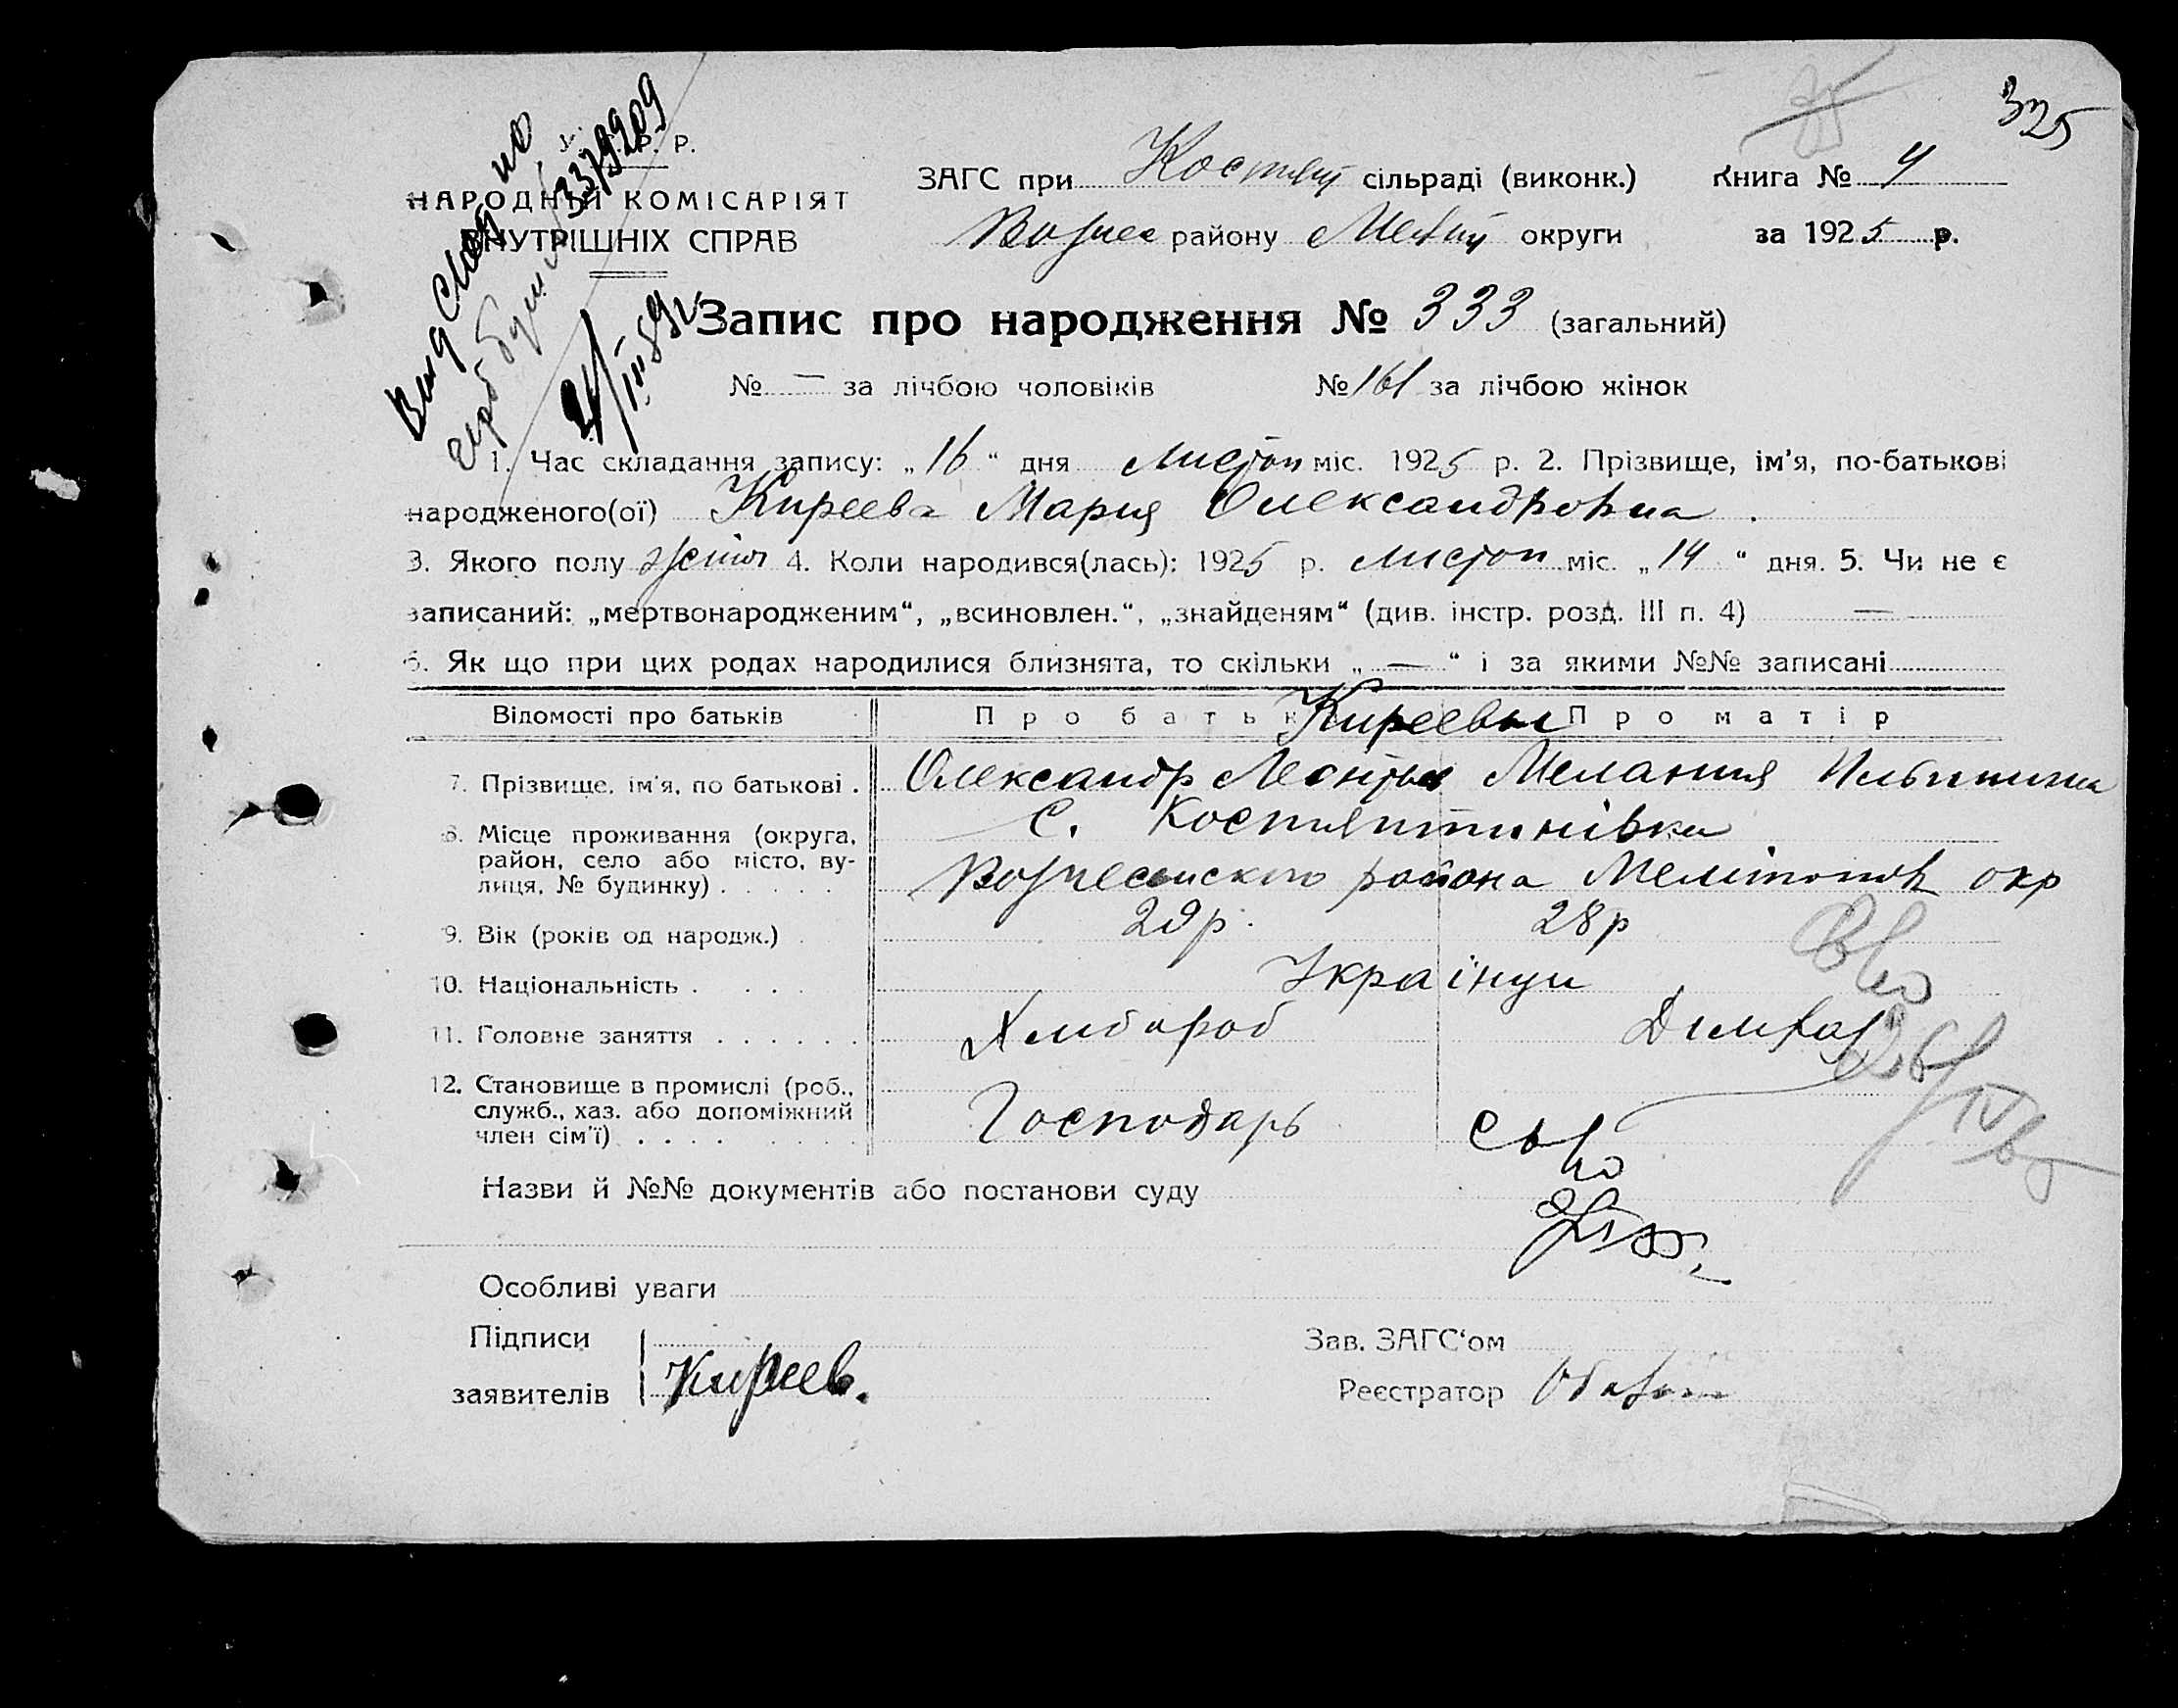 325
У. С. Р. Р.
НАРОДНІЙ КОМІСАРІЯТ
ВНУТРІШНІХ СПРАВ
ЗАГС при сільраді (виконк.) Книга № 4
району округи за 1925 р.
Запис про народження № 333 (загальний)
№ — за лічбою чоловіків № 161 за лічбою жінок
1. Час складання запису: „16“ дня Листоп міс. 1925 р. 2. Прізвище, ім'я, по-батькові
народженого(ої) Киреева Мария Олександровна.
3. Якого полу жіноч 4. Коли народився(лась): 1925 р. листоп міс. „14“ дня. 5. Чи не є
записаний: „мертвонародженим“, „всиновлен.“, „знайденям“ (див. інстр. розд. III п. 4) —
6. Як що при цих родах народилися близнята, то скільки „—“ і за якими №№ записані
Відомості про батьків Про батька Про матір
Киреевы
7. Прізвище, ім'я, по батькові . Олександр Меланния
8. Місце проживання (округа, район, село або місто, вулиця, № будинку) . . . . . С. Костянтинівка
района окр
9. Вік (років од народж.) . 29 р. 28 р
10. Національність . . . . Українци
11. Головне заняття . . . . . . Хлибороб
12. Становище в промислі (роб., служб., хаз. або допоміжний член сім'ї) . . . . Господарь
Назви й №№ документів або постанови суду
Особливі уваги
Підписи Зав. ЗАГС‘ом
заявителів Киреев. Реєстратор